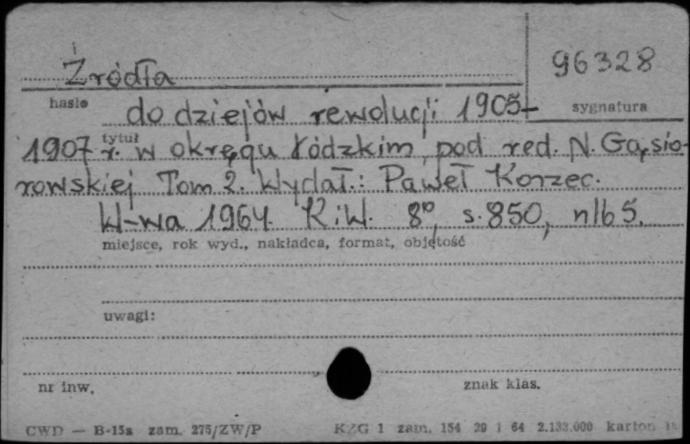 Źródła 96328
hasło sygnatura
do dziejów rewolucji 1905-
1907 tytuł r. w okręgu łódzkim, pod red. N. Gąsio-
rowskiej Tom 2. Wydał.: Paweł Korzec.
W-wa 1964. K.i W. 8°, s. 850, nlb 5.
miejsce, rok wyd., nakładca, format, objętość
uwagi:
nr inw. znak klas.
CWD — B-15a zam. 275/ZW/P KZG 1 zam. 154 29 1 64 2.133.000 karton